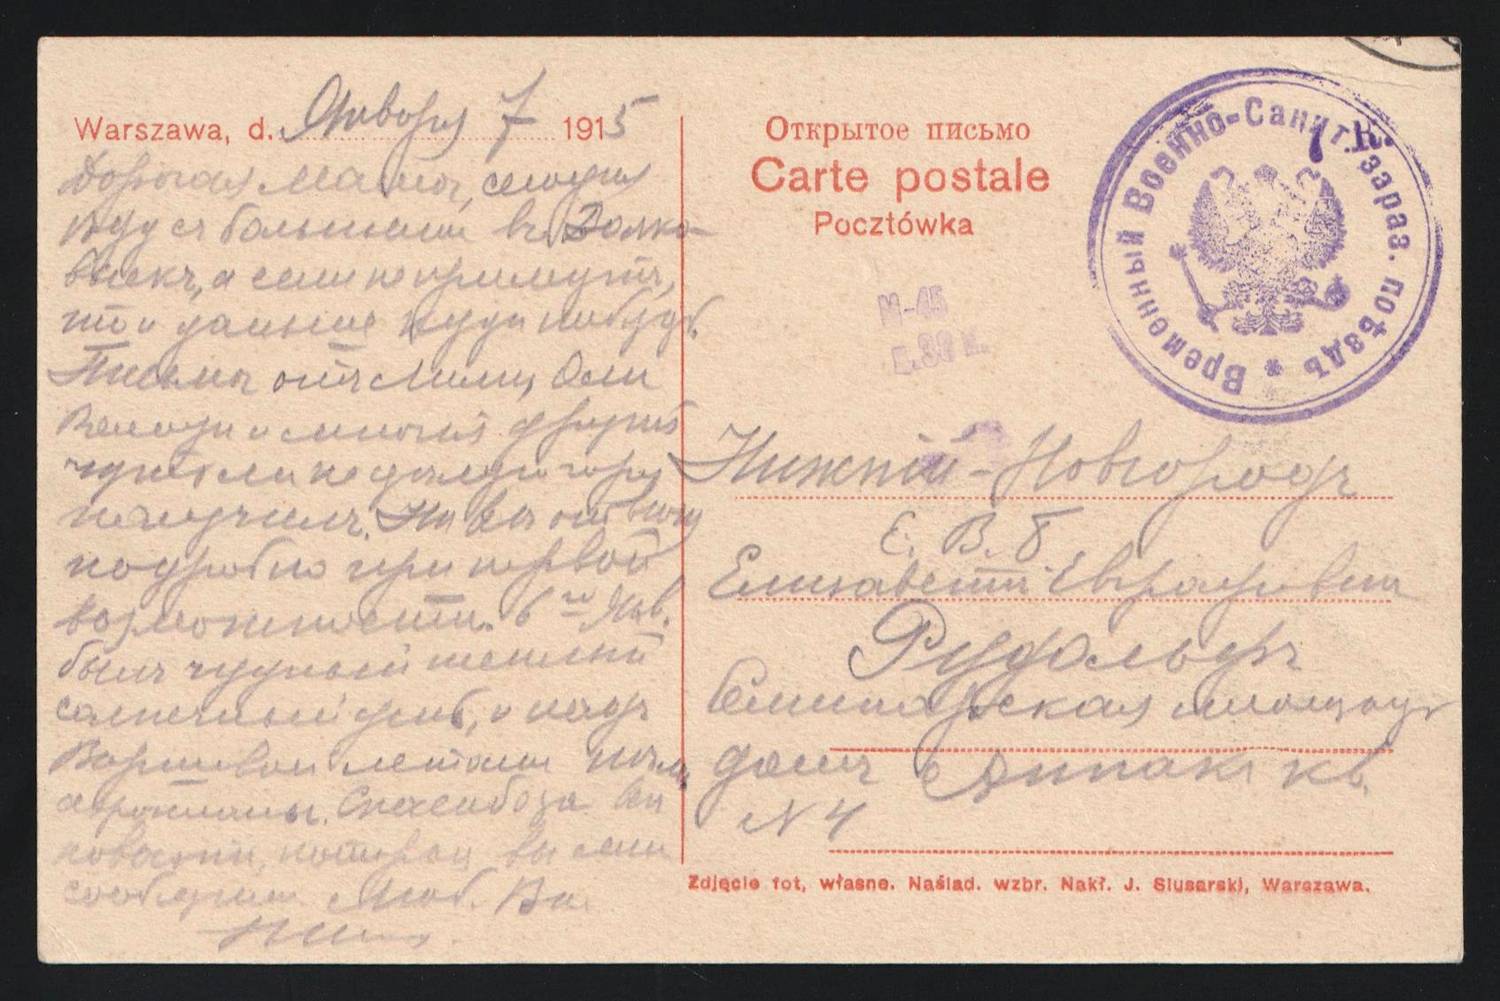 Warszawa, d. Января 7 1915
Дорогая Мама, сегодня
еду съ больными въ Волко-
выскъ, а если не примутъ,
то и дальше куда нибудь.
Письма отъ Мили, Оли
Володи и многихъ другихъ
получилъ. На вс
подробно при первой
возможности. 6го Янв.
былъ чудный теплый
солнечный день, и надъ
Варшавой летали
аэропланы. Спасибо за
которыя вы мне
сообщили. Люб. Ва
Открытое письмо
Carte postale
Pocztówka
Временный Военно-Санит. зараз. поѣздъ *
М-45
к.
Нижній-Новгородъ
Е. В. Б.
Елизаветѣ Евграфовнѣ
Рудольфъ
Семинарская площадь
домъ кв.
N 4
Zdjęcie fot, własne. Naślad. wzbr. Nakł. J. Slusarski, Warszawa.